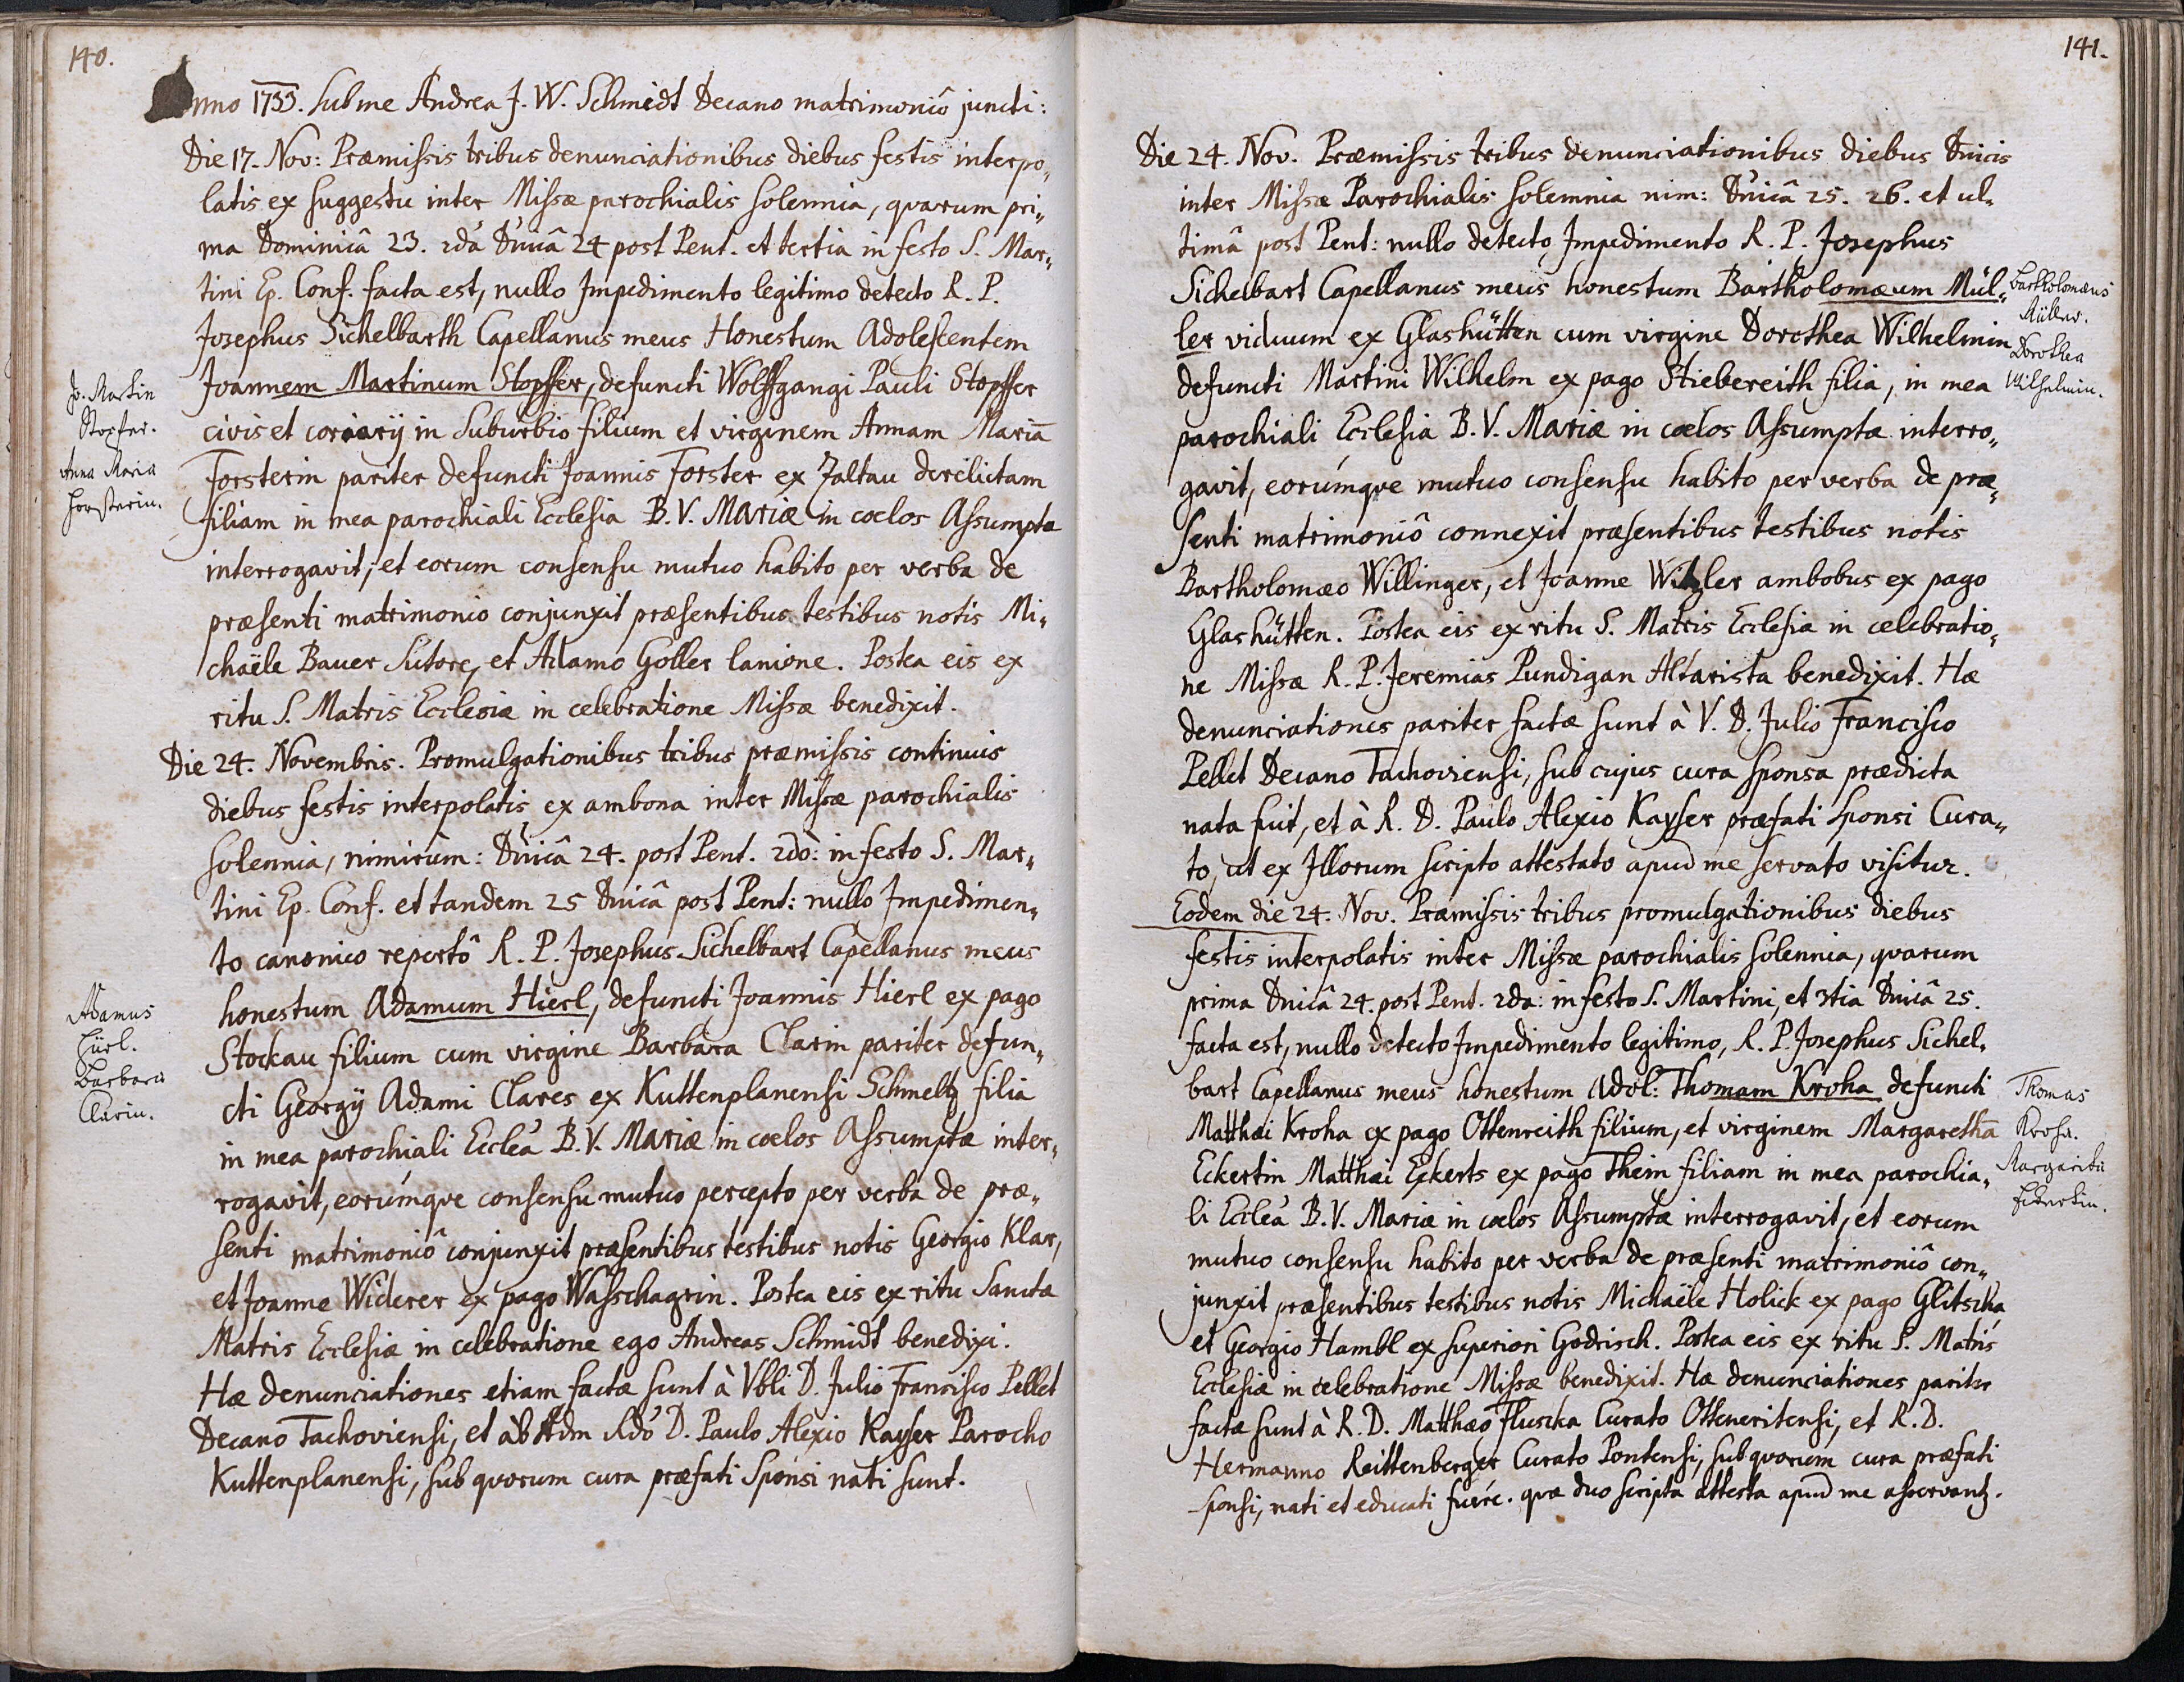 140.
Anno 1733. Sub me Andrea J. W. Schmidt Decano matrimoniô juncti:
Die 17. Nov: Præmissis tribus denunciationibus diebus festis interpo„
latis ex suggestu inter Missæ parochialis solennia, quarum pri„
ma Dominicâ 23. 2dá Dnicâ 24 post Pent. et tertia in festo S. Mar„
tini Ep. Conf. facta est, nullo Impedimento legitimo detecto R. P.
Josephus Sichelbarth Capellanus meus Honestum Adolescentem
Joannem Martinum Stopffer, defuncti Wolffgangi Pauli Stopffer
civis et coriarij in Suburbio filium et virginem Annam Mariā
Forsterin pariter defuncti Joannis Forster ex Zaltau derelictam
filiam in mea parochiali Ecclesia B. V. Mariæ in coelos Assumptæ
interrogavit, et eorum consensu mutuo habito per verba de
præsenti matrimonio conjunxit præsentibus testibus notis Mi„
chaële Bauer Sutore, et Adamo Goller lanione. Postea eis ex
ritu S. Matris Ecclesiæ in celebratione Missæ benedixit.
Jo. Martin
Stopfer.
Anna Maria
Forsterin.
Die 24. Novembris. Promulgationibus tribus præmissis continuis
diebus festis interpolatis ex ambona inter Missæ parochialis
solennia, nimirùm: Dnicâ 24. post Pent. 2dò: in festo S. Mar„
tini Ep. Conf. et tandem 25 Dnicâ post Pent: nullo Impedimen„
to canonico repertô R. P. Josephus Sichelbart Capellanus meus
honestum Adamum Hierl, defuncti Joannis Hierl ex pago
Stockau filium cum virgine Barbara Clarin pariter defun„
cti Georgij Adami Clares ex Kuttenplanensi Schmeltz filia
in mea parochiali Ecclêa B. V. Mariæ in coelos Assumptæ inter„
rogavit, eorúmqve consensu mutuo percepto per verba de præ„
senti matrimoniô conjunxit præsentibus testibus notis Georgio Klar,
et Joanne Widerer ex pago Wasschagrin. Postea eis ex ritu Sanctæ
Matris Ecclesiæ in celebratione ego Andreas Schmidt benedixi.
Hæ denunciationes etiam factæ sunt à Vbli D. Julio Francisco Pellet
Decano Tachoviensi, et àb Adm Rdo D. Paulo Alexio Kayser Parocho
Kuttenplanensi, sub quorum cura præfati Sponsi nati sunt.
Adamus
Hürl.
Barbara
Clarin.
141.
Die 24. Nov. Præmissis tribus denunciationibus diebus Dnicis
inter Missæ Parochialis solemnia nim: Dnicâ 25. 26. et ul„
timâ post Pent: nullo detecto Impedimento R. P. Josephus
Sichelbart Capellanus meus honestum Bartholomæum Mül„
ler viduum ex Glashütten cum virgine Dorothea Wilhelmin
defuncti Martini Wilhelm ex pago Stiebereith filia, in mea
parochiali Ecclesia B. V. Mariæ in coelos Assumptæ interro„
gavit, eorúmqve mutuo consensu habito per verba de præ„
senti matrimoniô connexit præsentibus testibus notis
Bartholomæo Willinger, et Joanne Witzler ambobus ex pago
Glashütten. Postea eis ex ritu S. Matris Ecclesiæ in celebratio„
ne Missæ R. P. Jeremias Pundigan Altarista benedixit. Hæ
denunciationes pariter factæ sunt à V. D. Julio Francisco
Pellet Decano Tachoviensi, sub cujus cura sponsa prædicta
nata fuit, et à R. D. Paulo Alexio Kayser præfati Sponsi Cura„
to, ut ex Illorum scripto attestato apud me servato visitur.
Bartholomæus
Müller.
Dorothea
Wilhelmin.
Eodem die 24. Nov. Præmissis tribus promulgationibus diebus
festis interpolatis inter Missæ parochialis solennia, quarum
prima Dnicâ 24. post Pent. 2da: in festo S. Martini, et 3tia Dnicâ 25.
facta est, nullo detecto Impedimento legitimo, R. P. Josephus Sichel„
bart Capellanus meus honestum Adol: Thomam Kroha defuncti
Matthæi Kroha ex pago Ottenreith filium, et virginem Margarethā
Eckertin Matthæi Eckerts ex pago Thein filiam in mea parochia„
li Ecclêa B. V. Mariæ in coelos Assumptæ interrogavit, et eorum
mutuo consensu habito per verba de præsenti matrimoniô con„
junxit præsentibus testibus notis Michaële Holick ex pago Glitscha
et Georgio Hambl ex superiori Godrisch. Postea eis ex ritu S. Matris
Ecclesiæ in celebratione Missæ benedixit. Hæ denunciationes pariter
factæ sunt à R. D. Matthæo Fluscka Curato Otteneritensi, et R. D.
Hermanno Reittenberger Curato Pontensi, sub quorum cura præfati
sponsi, nati et educati fuêre. quæ duo scripta attesta apud me asservantz.
Thomas
Kroha.
Margaritha
Eckertin.